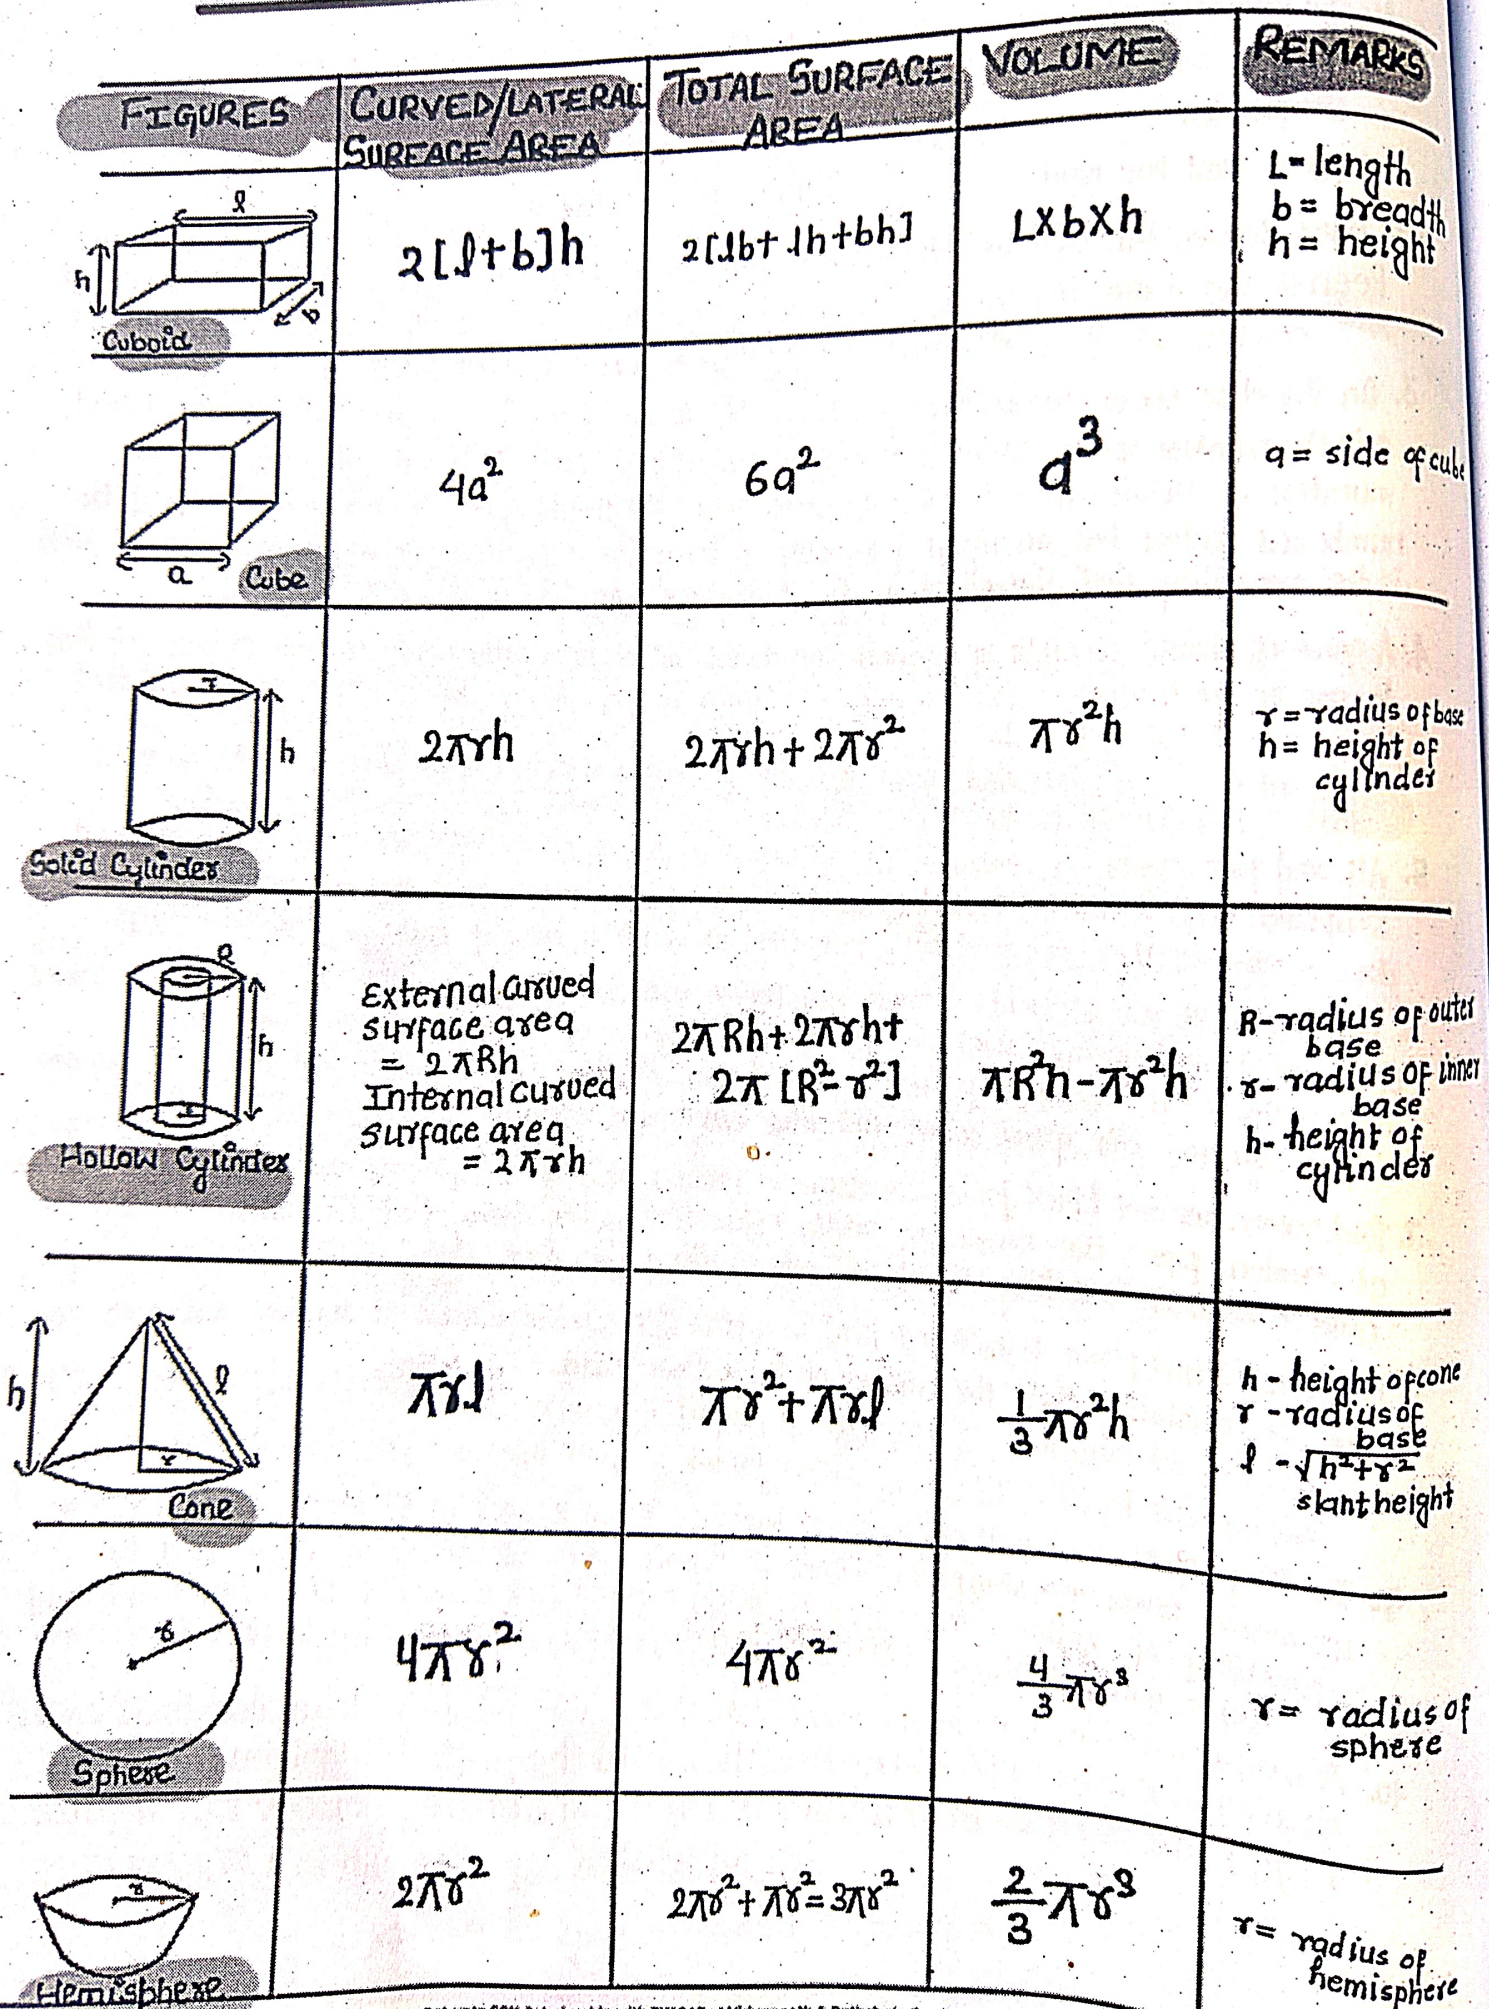 FIGURES
CURVED/LATERAL
SURFACE AREA
TOTAL SURFACE
AREA
VOLUME
REMARKS
l
h
b
Cuboid
2[l+b]h
2[lb+lh+bh]
L×b×h
L-length
b= breadth
h= height
a
Cube
4a²
6a²
a³
a= side of cube
r
h
Solid Cylinder
2πrh
2πrh+2πr²
πr²h
r=radius of base
h= height of
cylinder
R
h
r
Hollow Cylinder
External curved
surface area
= 2πRh
Internal curved
surface area
= 2πrh
2πRh+2πrh+
2π[R²-r²]
πR²h-πr²h
R-radius of outer
base
r-radius of inner
base
h-height of
cylinder
h
l
r
Cone
πrl
πr²+πrl
1/3πr²h
h-height of cone
r-radius of
base
l-√h²+r²
slant height
r
Sphere
4πr²
4πr²
4/3πr³
r= radius of
sphere
r
Hemisphere
2πr²
2πr²+πr²=3πr²
2/3πr³
r= radius of
hemisphere